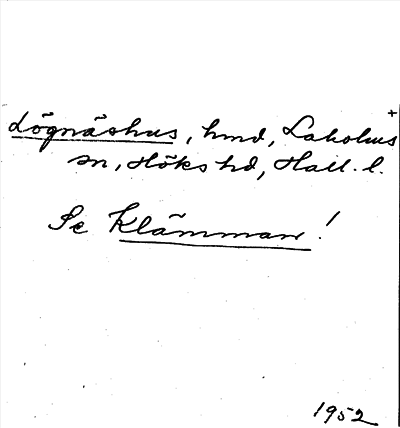 +
Lögnäshus, hmd, Laholms
sn, Höks hd, Hall. l.
Se Klämman!
1952